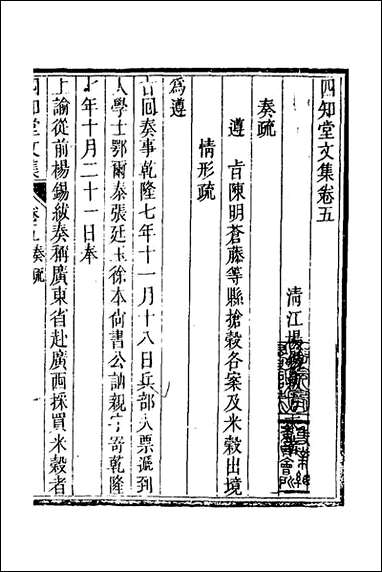 四知堂文集卷五
清江楊
奏疏
遵 旨陳明蒼藤等縣搶穀各案及米穀出境
情形疏
為遵
旨回奏事乾隆七年十一月十八日兵部火票遞到
大學士鄂爾泰張廷玉徐本尚書公訥親字寄乾隆
七年十月二十一日奉
上諭從前楊錫紱奏稱廣東省赴廣西採買米穀者
四知堂文集 卷五奏疏